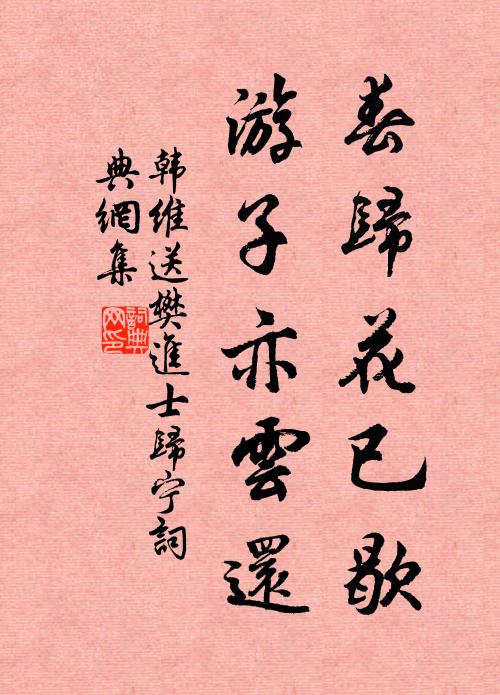 春歸花已歇
游子亦雲還
韩維送樊進士歸宁詞
典網集
詞典网印